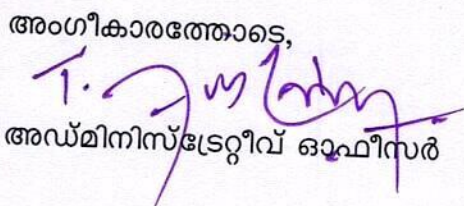 അംഗീകാരത്തോടെ,
അഡ്മിനിസ്ട്രേറ്റീവ് ഓഫീസർ